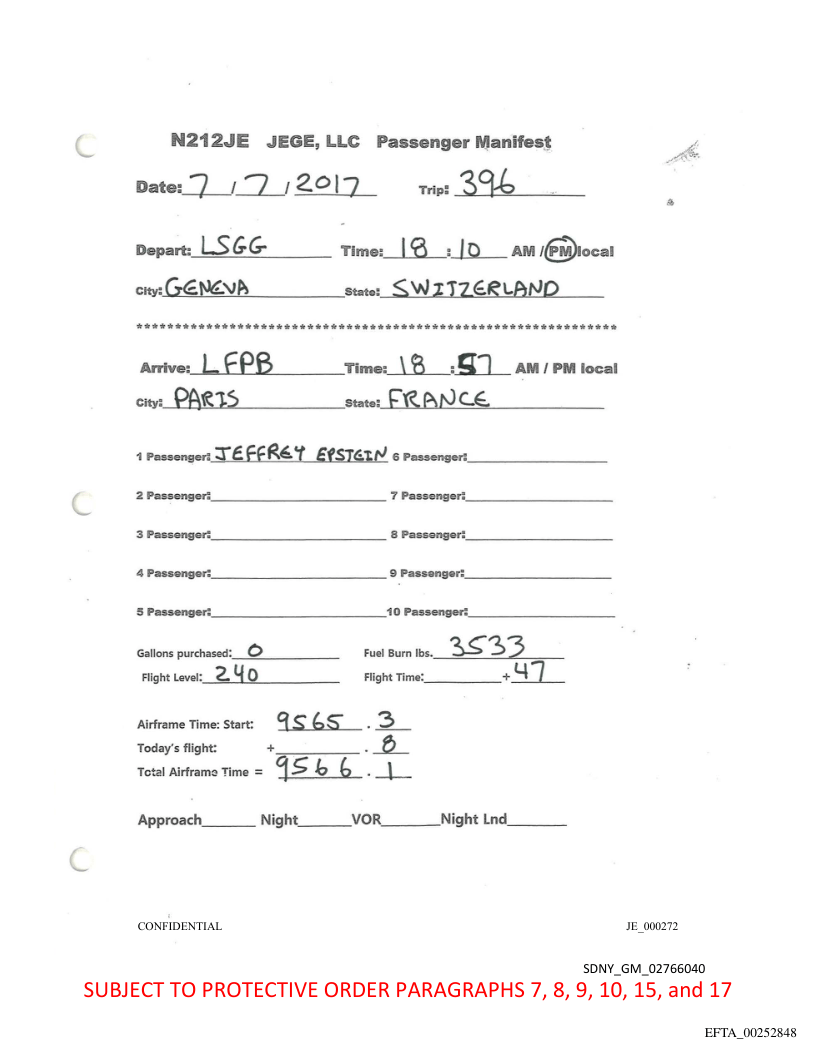 N212JE JEGE, LLC Passenger Manifest
Date: 7 / 7 / 2017 Trip: 396
Depart: LSGG Time: 18 : 10 AM / PM local
City: GENEVA State: SWITZERLAND
***************************************************************
Arrive: LFPB Time: 18 : 57 AM / PM local
City: PARIS State: FRANCE
1 Passenger: JEFFREY EPSTEIN 6 Passenger:
2 Passenger: 7 Passenger:
3 Passenger: 8 Passenger:
4 Passenger: 9 Passenger:
5 Passenger: 10 Passenger:
Gallons purchased: 0 Fuel Burn lbs. 3533
Flight Level: 240 Flight Time: + 47
Airframe Time: Start: 9565 . 3
Today's flight: + . 8
Total Airframe Time = 9566 . 1
Approach Night VOR Night Lnd
CONFIDENTIAL JE_000272
SDNY_GM_02766040
SUBJECT TO PROTECTIVE ORDER PARAGRAPHS 7, 8, 9, 10, 15, and 17
EFTA_00252848